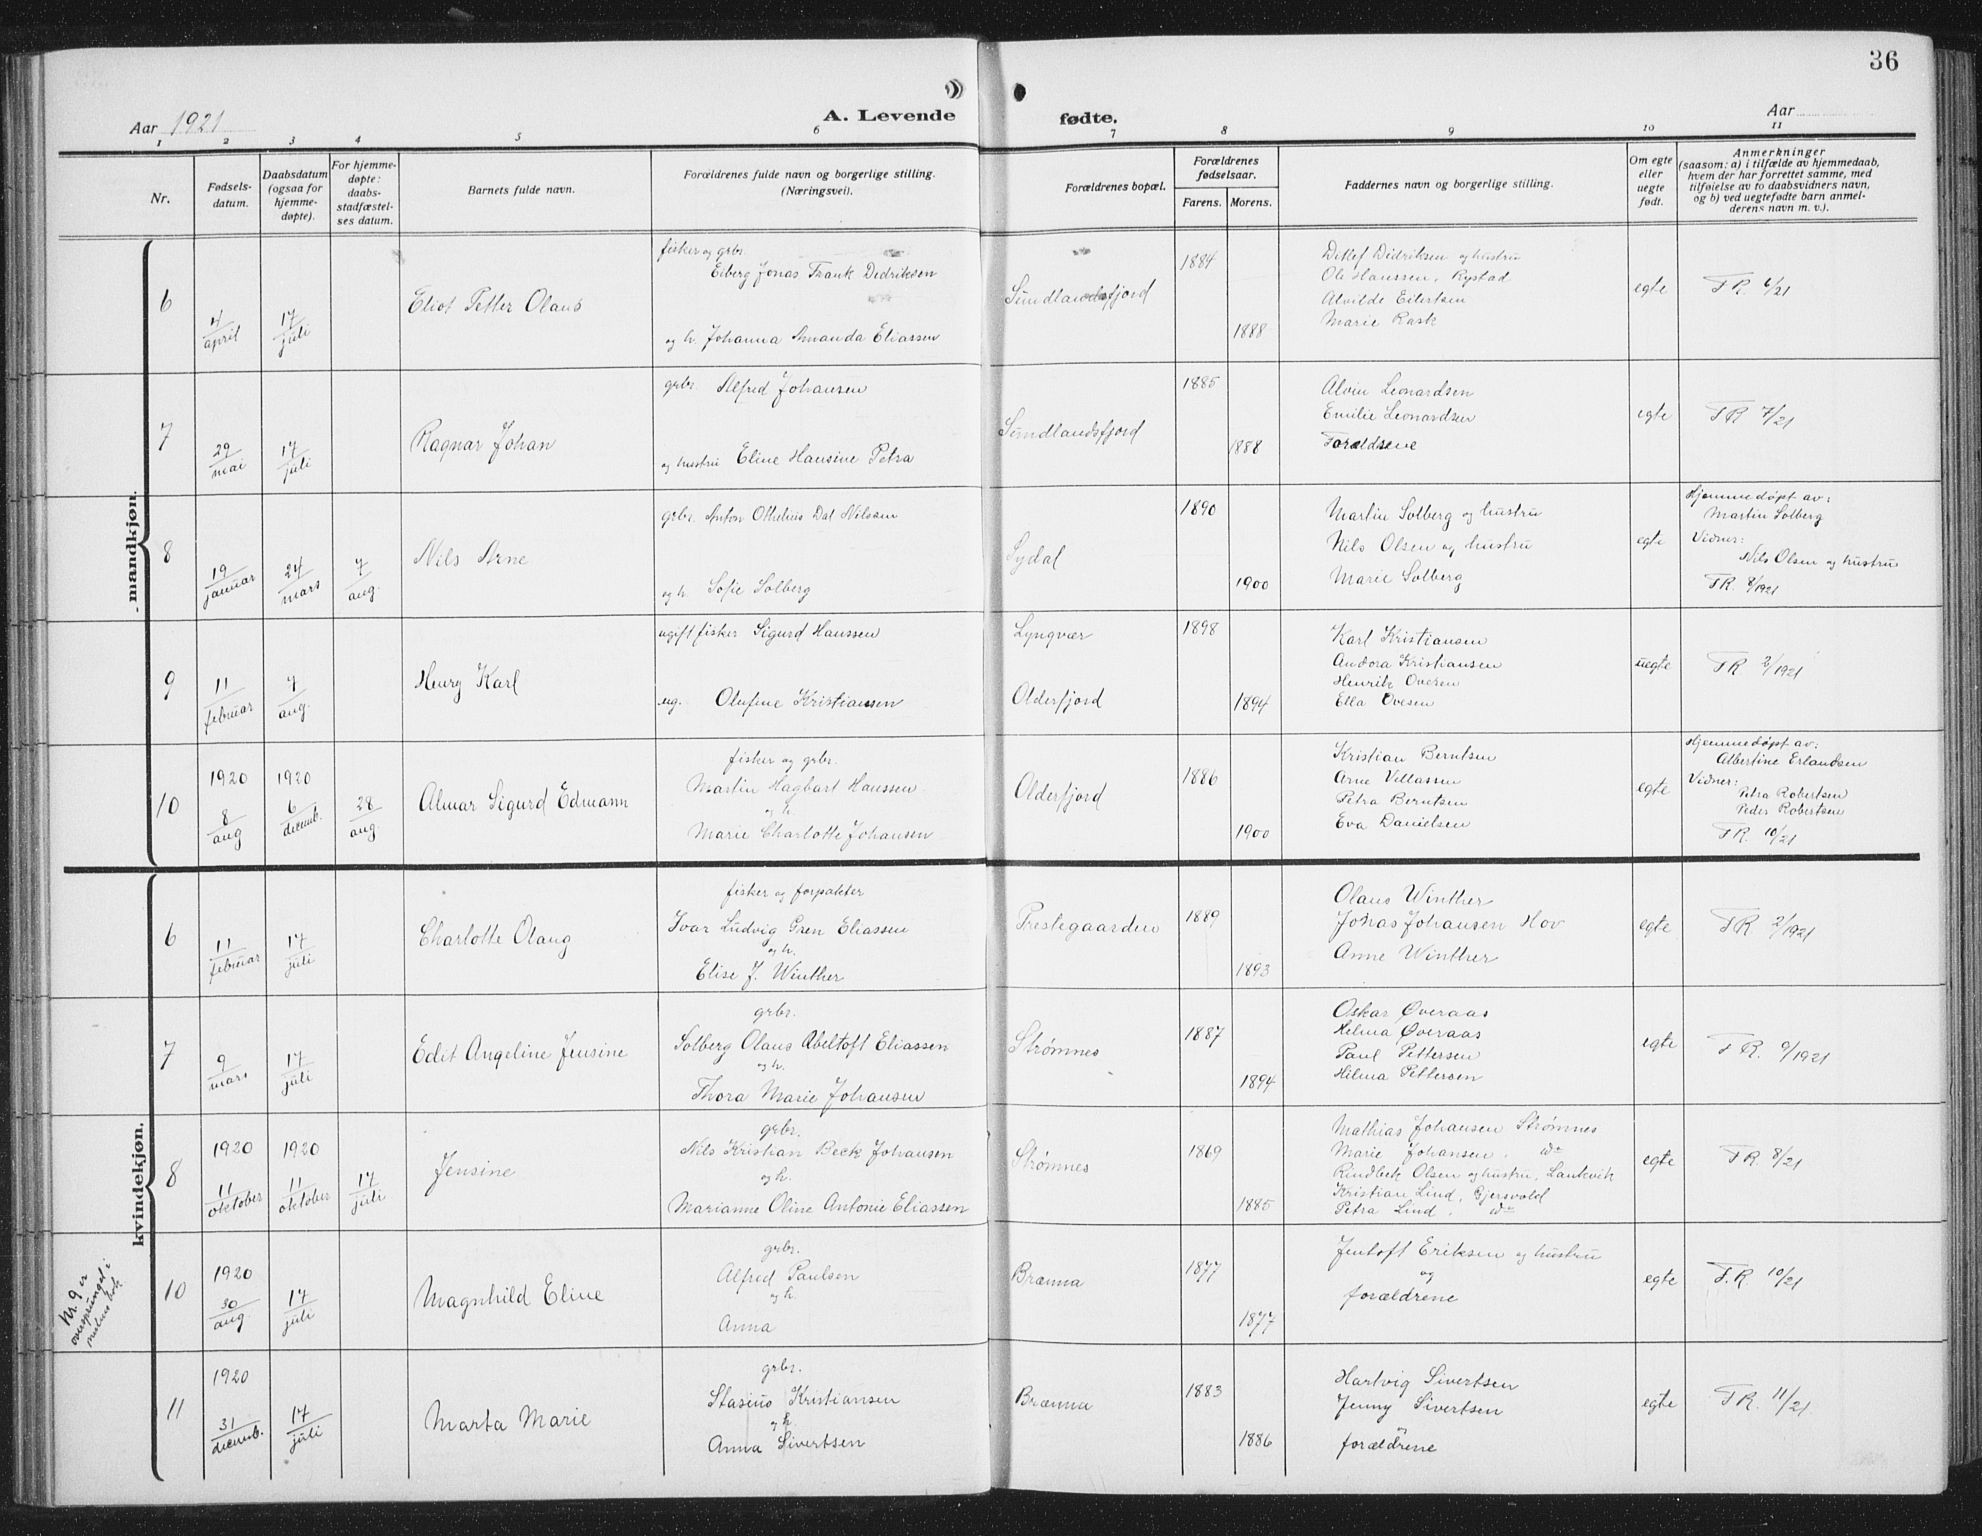 36
Aar 1921
A. Levende fødte.
Aar
1 2 3 4 5 6 7 8 9 10 11
Nr.
Fødsels-
datum.
Daabsdatum
(ogsaa for
hjemme-
døpte).
For hjemme-
døpte:
daabs-
stadfæstel-
ses datum.
Barnets fulde navn.
Forældrenes fulde navn og borgerlige stilling.
(Næringsvei).
Forældrenes bopæl.
Forældrenes
fødselsaar.
Farens. Morens.
Faddernes navn og borgerlige stilling.
Om egte
eller
uegte
født.
Anmerkninger
(saasom: a) i tilfælde av hjemmedaab,
hvem der har forrettet samme, med
tilføielse av to daabsvidners navn,
og b) ved uegtefødte barn anmel-
derens navn m. v.).
mandkjøn.
6
4/april
17/juli
Eliot Petter Olaus
fisker og grbr.
Eiberg Jonas Frank Dedriksen
og h. Johanna Amanda Eliassen
Sundlandsfjord
1884
1888
Ditlef Didriksen og hustru
Ole Hanssen, Rystad
Alvilde Eilertsen
Marie Rask
egte
F.R. 6/21
7
29/mai
17/juli
Ragnar Johan
grbr. Alfred Johansen
og hustru Eline Hansine Petra
Sundlandsfjord
1885
1888
Alvin Leonardsen
Emilie Leonardsen
Forældrene
egte
F.R. 7/21
8
19/januar
24/mars
7/aug.
Nils Arne
grbr. Anton Othelius Dal Nilsen
og h. Sofie Solberg
Sydal
1890
1900
Martin Solberg og hustru
Nils Olsen og hustru
Marie Solberg
egte
Hjemmedøpt av:
Martin Solberg
Vidner:
Nils Olsen og hustru
F.R. 8/1921
9
11/februar
7/aug.
Henry Karl
ugift fisker Sigurd Hanssen
ug. Olufine Kristianssen
Lyngvær
Olderfjord
1898
1894
Karl Kristiansen
Andora Kristiansen
Henrik Ovesen
Ella Ovesen
uegte
F.R. 2/1921
10
1920
8/aug
1920
6/decemb.
28/aug.
Almar Sigurd Edmann
fisker og grbr.
Martin Hagbart Hanssen
og h.
Marie Charlotte Johansen
Olderfjord
1886
1900
Kristian Berntsen
Arne Villassen
Petra Berntsen
Eva Danielsen
egte
Hjemmedøpt av:
Albertine Erlandsen
Vidner:
Petra Robertsen
Peder Robertsen
F.R. 10/21
kvindekjøn.
6
11/februar
17/juli
Charlotte Olaug
fisker og forpakter
Ivar Ludvig Gren Eliassen
og h.
Elise J. Winther
Prestegaarden
1889
1893
Olaus Winther
Jonas Johansen Hov
Anne Winther
egte
F.R. 2/1921
7
9/mars
17/juli
Edit Angeline Jensine
grbr.
Solberg Olaus Abeltoft Eliassen
og h.
Thora Marie Johansen
Strømnes
1887
1894
Oskar Øveraas
Helma Øveraas
Paul Pettersen
Hilma Pettersen
egte
F.R. 9/1921
8
1920
11/oktober
1920
11/oktober
17/juli
Jensine
grbr.
Nils Kristian Beck Johansen
og h.
Marianne Oline Antonie Eliassen
Strømnes
1869
1885
Mathias Johansen Strømnes
Marie Johansen, do
Rindbek Olsen og hustru, Laukvik
Kristian Lind, Gjersvold
Petra Lind, do
egte
F.R. 8/21
Nr. 9 er
oversprunget i
10
1920
30/aug.
17/juli
Magnhild Eline
grbr.
Alfred Paulsen
og h.
Anna
Brænna
1877
1877
Jentoft Eriksen og hustru
og
forældrene
egte
F.R. 10/21
11
1920
31/decemb.
17/juli
Marta Marie
grbr.
Stasius Kristiansen
og h.
Anna Sivertsen
Brænna
1883
1886
Hartvig Sivertsen
Jenny Sivertsen
forældrene
egte
F.R. 11/21